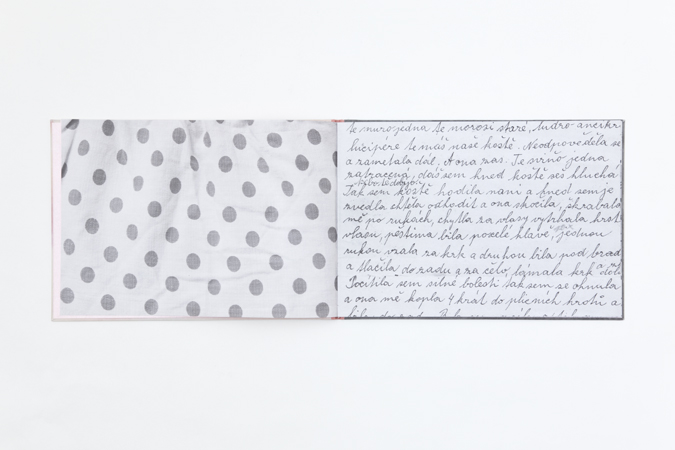 te muro jedna te morosi staré, ludro
lucipere te máš naše koště. Neodpověděla se
a zametala dál. A ona zas. Te mrňo jedna
zatracená, daš sem hned koště seš hluchá
Tak sem koště hodila na ni a hned sem je
zvedla chtěla odhodit a ona skočila, škrabala
mě po rukách, chytla za vlasy vytrhala hrst
vlasu, pěstima bila po celé hlavě, jednou
rukou vzala za krk a druhou bila pod brad
a tlačila do zadu a za čelo, lámala krk
Pocítila sem silné bolesti tak sem se ohnula
a ona mě kopla 4 krát do plicních hrotů a